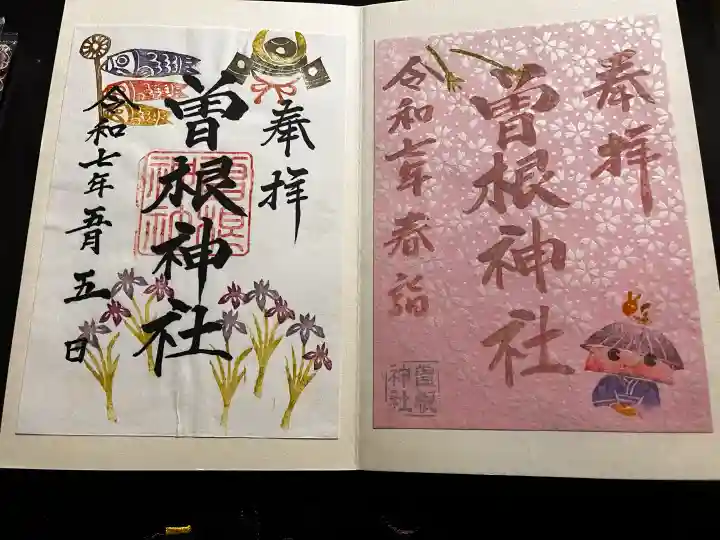 奉拝
曽根神社
令和七年五月五日
曽根神社
奉拝
曽根神社
令和七年春詣
曽根神社